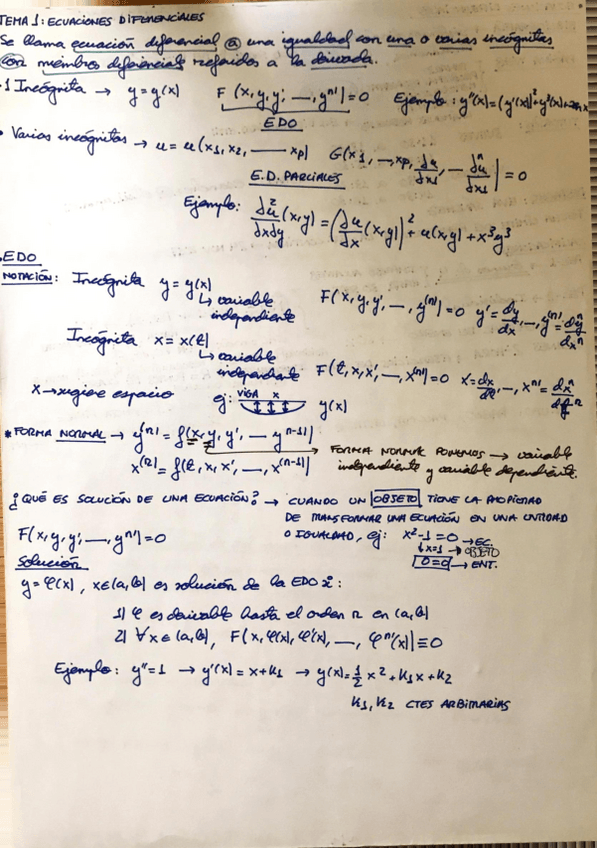 TEMA 1: ECUACIONES DIFERENCIALES
Se llama ecuación diferencial a una igualdad con una o varias incógnitas
con miembros diferenciales referidos a la derivada.
1 Incógnita → y = y(x) F(x, y, y', —, yⁿ⁾) = 0 Ejemplo: y''(x) = (y'(x))² + y³(x) +
EDO
• Varias incógnitas → u = u(x1, x2, —— xp) G(x1, —, xp, ∂u/∂x1, — ∂ⁿu/∂x1) = 0
E.D. PARCIALES
Ejemplo: ∂²u/∂x∂y (x,y) = (∂u/∂x (x,y))² + u(x,y) + x³y³
EDO
NOTACIÓN: Incógnita y = y(x)
↳ variable independiente
F(x, y, y', —, y⁽ⁿ⁾) = 0 y' = dy/dx, —, y⁽ⁿ⁾ = dⁿy/dxⁿ
Incógnita x = x(t)
↳ variable independiente
F(t, x, x', —, x⁽ⁿ⁾) = 0 x' = dx/dt, —, x⁽ⁿ⁾ = dxⁿ/dtⁿ
x → espacio ej: VIGA x y(x)
* FORMA NORMAL → y⁽ⁿ⁾ = f(x, y, y', — yⁿ⁻¹⁾)
x⁽ⁿ⁾ = f(t, x, x', —, x⁽ⁿ⁻¹⁾)
→ FORMA NORMAL PONEMOS → variable
independiente y variable dependiente.
¿QUÉ ES SOLUCIÓN DE UNA ECUACIÓN? → CUANDO UN OBJETO TIENE LA PROPIEDAD
DE TRANSFORMAR UNA ECUACIÓN EN UNA ENTIDAD
O IGUALDAD, ej: x² - 1 = 0 → EC.
↳ x = 1 → OBJETO
0 = 0 → ENT.
F(x, y, y', —, yⁿ⁾) = 0
Solución
y = φ(x), x∈(a,b) es solución de la EDO si:
1) φ es derivable hasta el orden n en (a,b)
2) ∀x∈(a,b), F(x, φ(x), φ'(x), —, φⁿ⁾(x)) ≡ 0
Ejemplo: y'' = 1 → y'(x) = x + k1 → y(x) = 1/2 x² + k1x + k2
k1, k2 CTES ARBITRARIAS